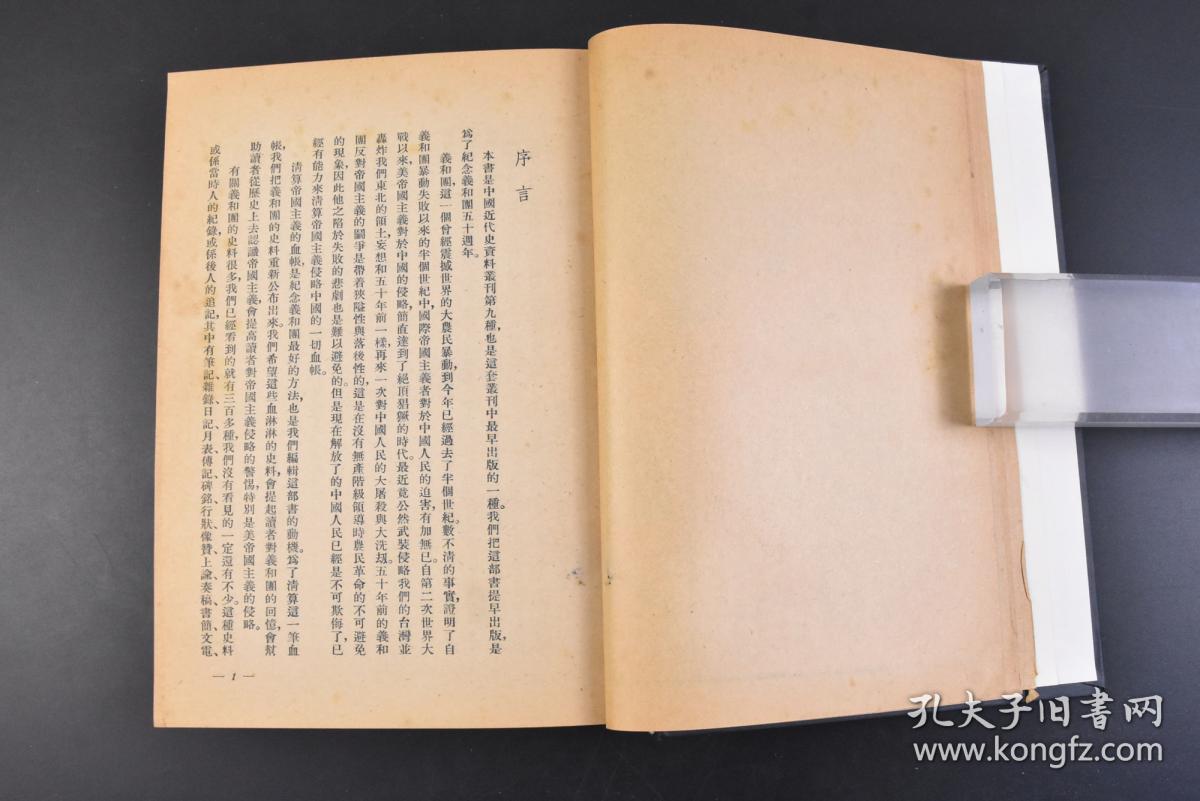 序言
本書是中國近代史資料叢刊第九種，也是這套叢刊中最早出版的一種。我們把這部書提早出版，是
爲了紀念義和團五十週年。
義和團，這一個曾經震撼世界的大農民暴動，到今年已經過去了半個世紀。數不清的事實，證明了自
義和團暴動失敗以來的半個世紀中，國際帝國主義者對於中國人民的迫害有加無已。自第二次世界大
戰以來，美帝國主義對於中國的侵略，簡直達到了絕頂猖獗的時代。最近竟公然武裝侵略我們的台灣並
轟炸我們東北的領土，妄想和五十年前一樣，再來一次對中國人民的大屠殺與大洗刼。五十年前的義和
團反對帝國主義的鬭爭是帶着狹隘性與落後性的，這是在沒有無產階級領導時農民革命的不可避免
的現象，因此他之陷於失敗的悲劇也是難以避免的。但是現在解放了的中國人民已經是不可欺侮了，已
經有能力來清算帝國主義侵略中國的一切血帳。
清算帝國主義的血帳，是紀念義和團最好的方法，也是我們編輯這部書的動機。爲了清算這一筆血
帳，我們把義和團的史料重新公布出來。我們希望這些血淋淋的史料，會提起讀者對義和團的回憶，會幫
助讀者從歷史上去認識帝國主義，會提高讀者對帝國主義侵略的警惕，特別是美帝國主義的侵略。
有關義和團的史料很多，我們已經看到的就有三百多種，我們沒有看見的一定還有不少。這種史料
或係當時人的紀錄，或係後人的追記，其中有筆記、雜錄、日記、月表、傳記、碑銘、行狀、像贊、上諭、奏稿、書簡、文電、
— 1 —
孔夫子旧書网
www.kongfz.com